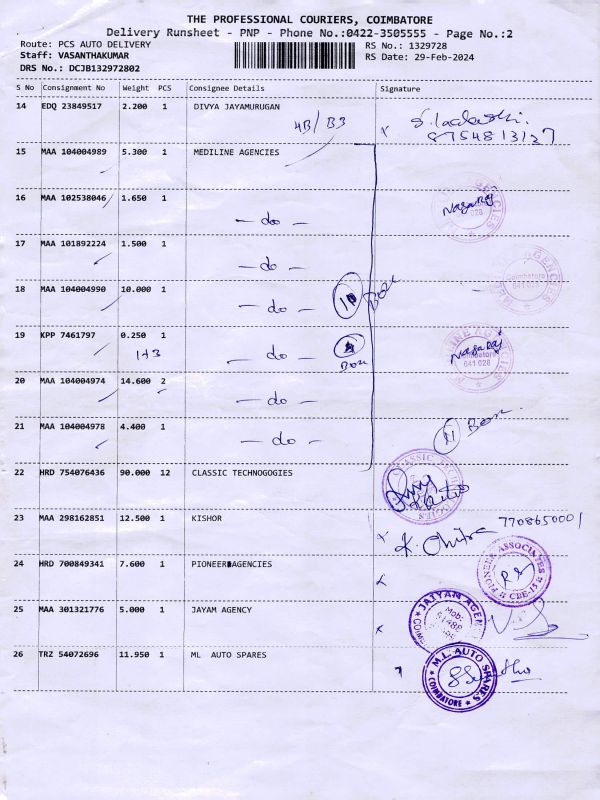 THE PROFESSIONAL COURIERS, COIMBATORE
Delivery Runsheet - PNP - Phone No.:0422-3505555 - Page No.:2
Route: PCS AUTO DELIVERY RS No.: 1329728
Staff: VASANTHAKUMAR RS Date: 29-Feb-2024
DRS No.: DCJB132972802
S No Consignment No Weight PCS Consignee Details Signature
14 EDQ 23849517 2.200 1 DIVYA JAYAMURUGAN
4B/B3
8754813137
15 MAA 104004989 5.300 1 MEDILINE AGENCIES
16 MAA 102538046 1.650 1
- do - Nagaraj
17 MAA 101892224 1.500 1
- do -
Coimbatore
641 028
18 MAA 104004990 10.000 1
- do - 10 Box
19 KPP 7461797 0.250 1
1+3 - do - Box Nagaraj
Coimbatore
641 028
20 MAA 104004974 14.600 2
- do -
21 MAA 104004978 4.400 1
- do - 11 Box
22 HRD 754076436 90.000 12 CLASSIC TECHNOGOGIES
23 MAA 298162851 12.500 1 KISHOR
7708650001
K. Chitra
24 HRD 700849341 7.600 1 PIONEER AGENCIES
PIONEER ASSOCIATES
CBE-15
25 MAA 301321776 5.000 1 JAYAM AGENCY
JAIYAM AGEN
Mob:
26 TRZ 54072696 11.950 1 ML AUTO SPARES
M.L. AUTO SPARES
COIMBATORE